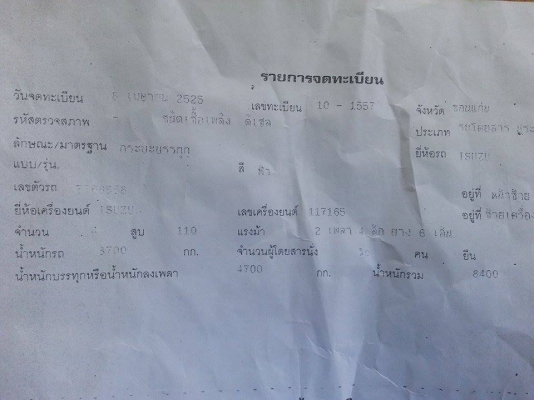 รายการจดทะเบียน
วันจดทะเบียน เมษายน 2525 เลขทะเบียน 10 - 1557 จังหวัด ขอนแก่น
รหัสตรวจสภาพ ชนิดเชื้อเพลิง ดีเซล ประเภท
ลักษณะ/มาตรฐาน กระบะบรรทุก ยี่ห้อรถ ISUZU
แบบ/รุ่น. สี ฟ้า
เลขตัวรถ อยู่ที่ หน้าซ้าย
ยี่ห้อเครื่องยนต์ ISUZU เลขเครื่องยนต์ 117165 อยู่ที่ ซ้ายเครื่อง
จำนวน สูบ 110 แรงม้า 2 เพลา 4 ล้อ ยาง 6 เส้น
น้ำหนักรถ 3700 กก. จำนวนผู้โดยสารนั่ง คน ยืน
น้ำหนักบรรทุกหรือน้ำหนักลงเพลา 4700 กก. น้ำหนักรวม 8400